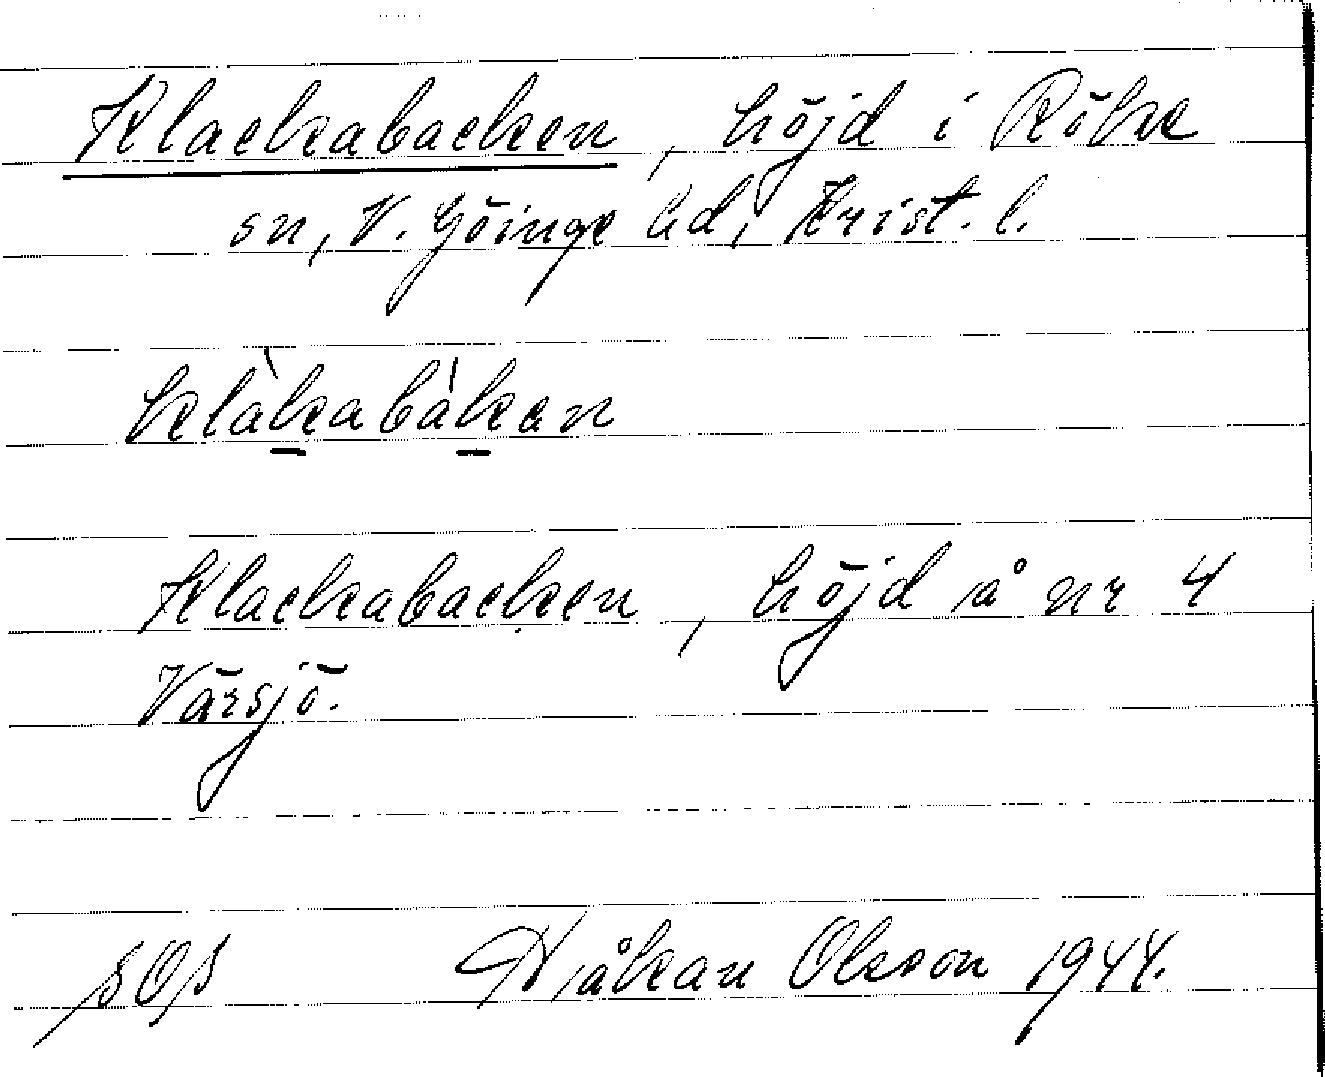 Klackabacken, höjd i Röke
sn, V. Göinge hd, Krist. l.
klàkabàkan
Klackabacken, höjd å nr 4
Värsjö.
SOS Håkan Olsson 1944.